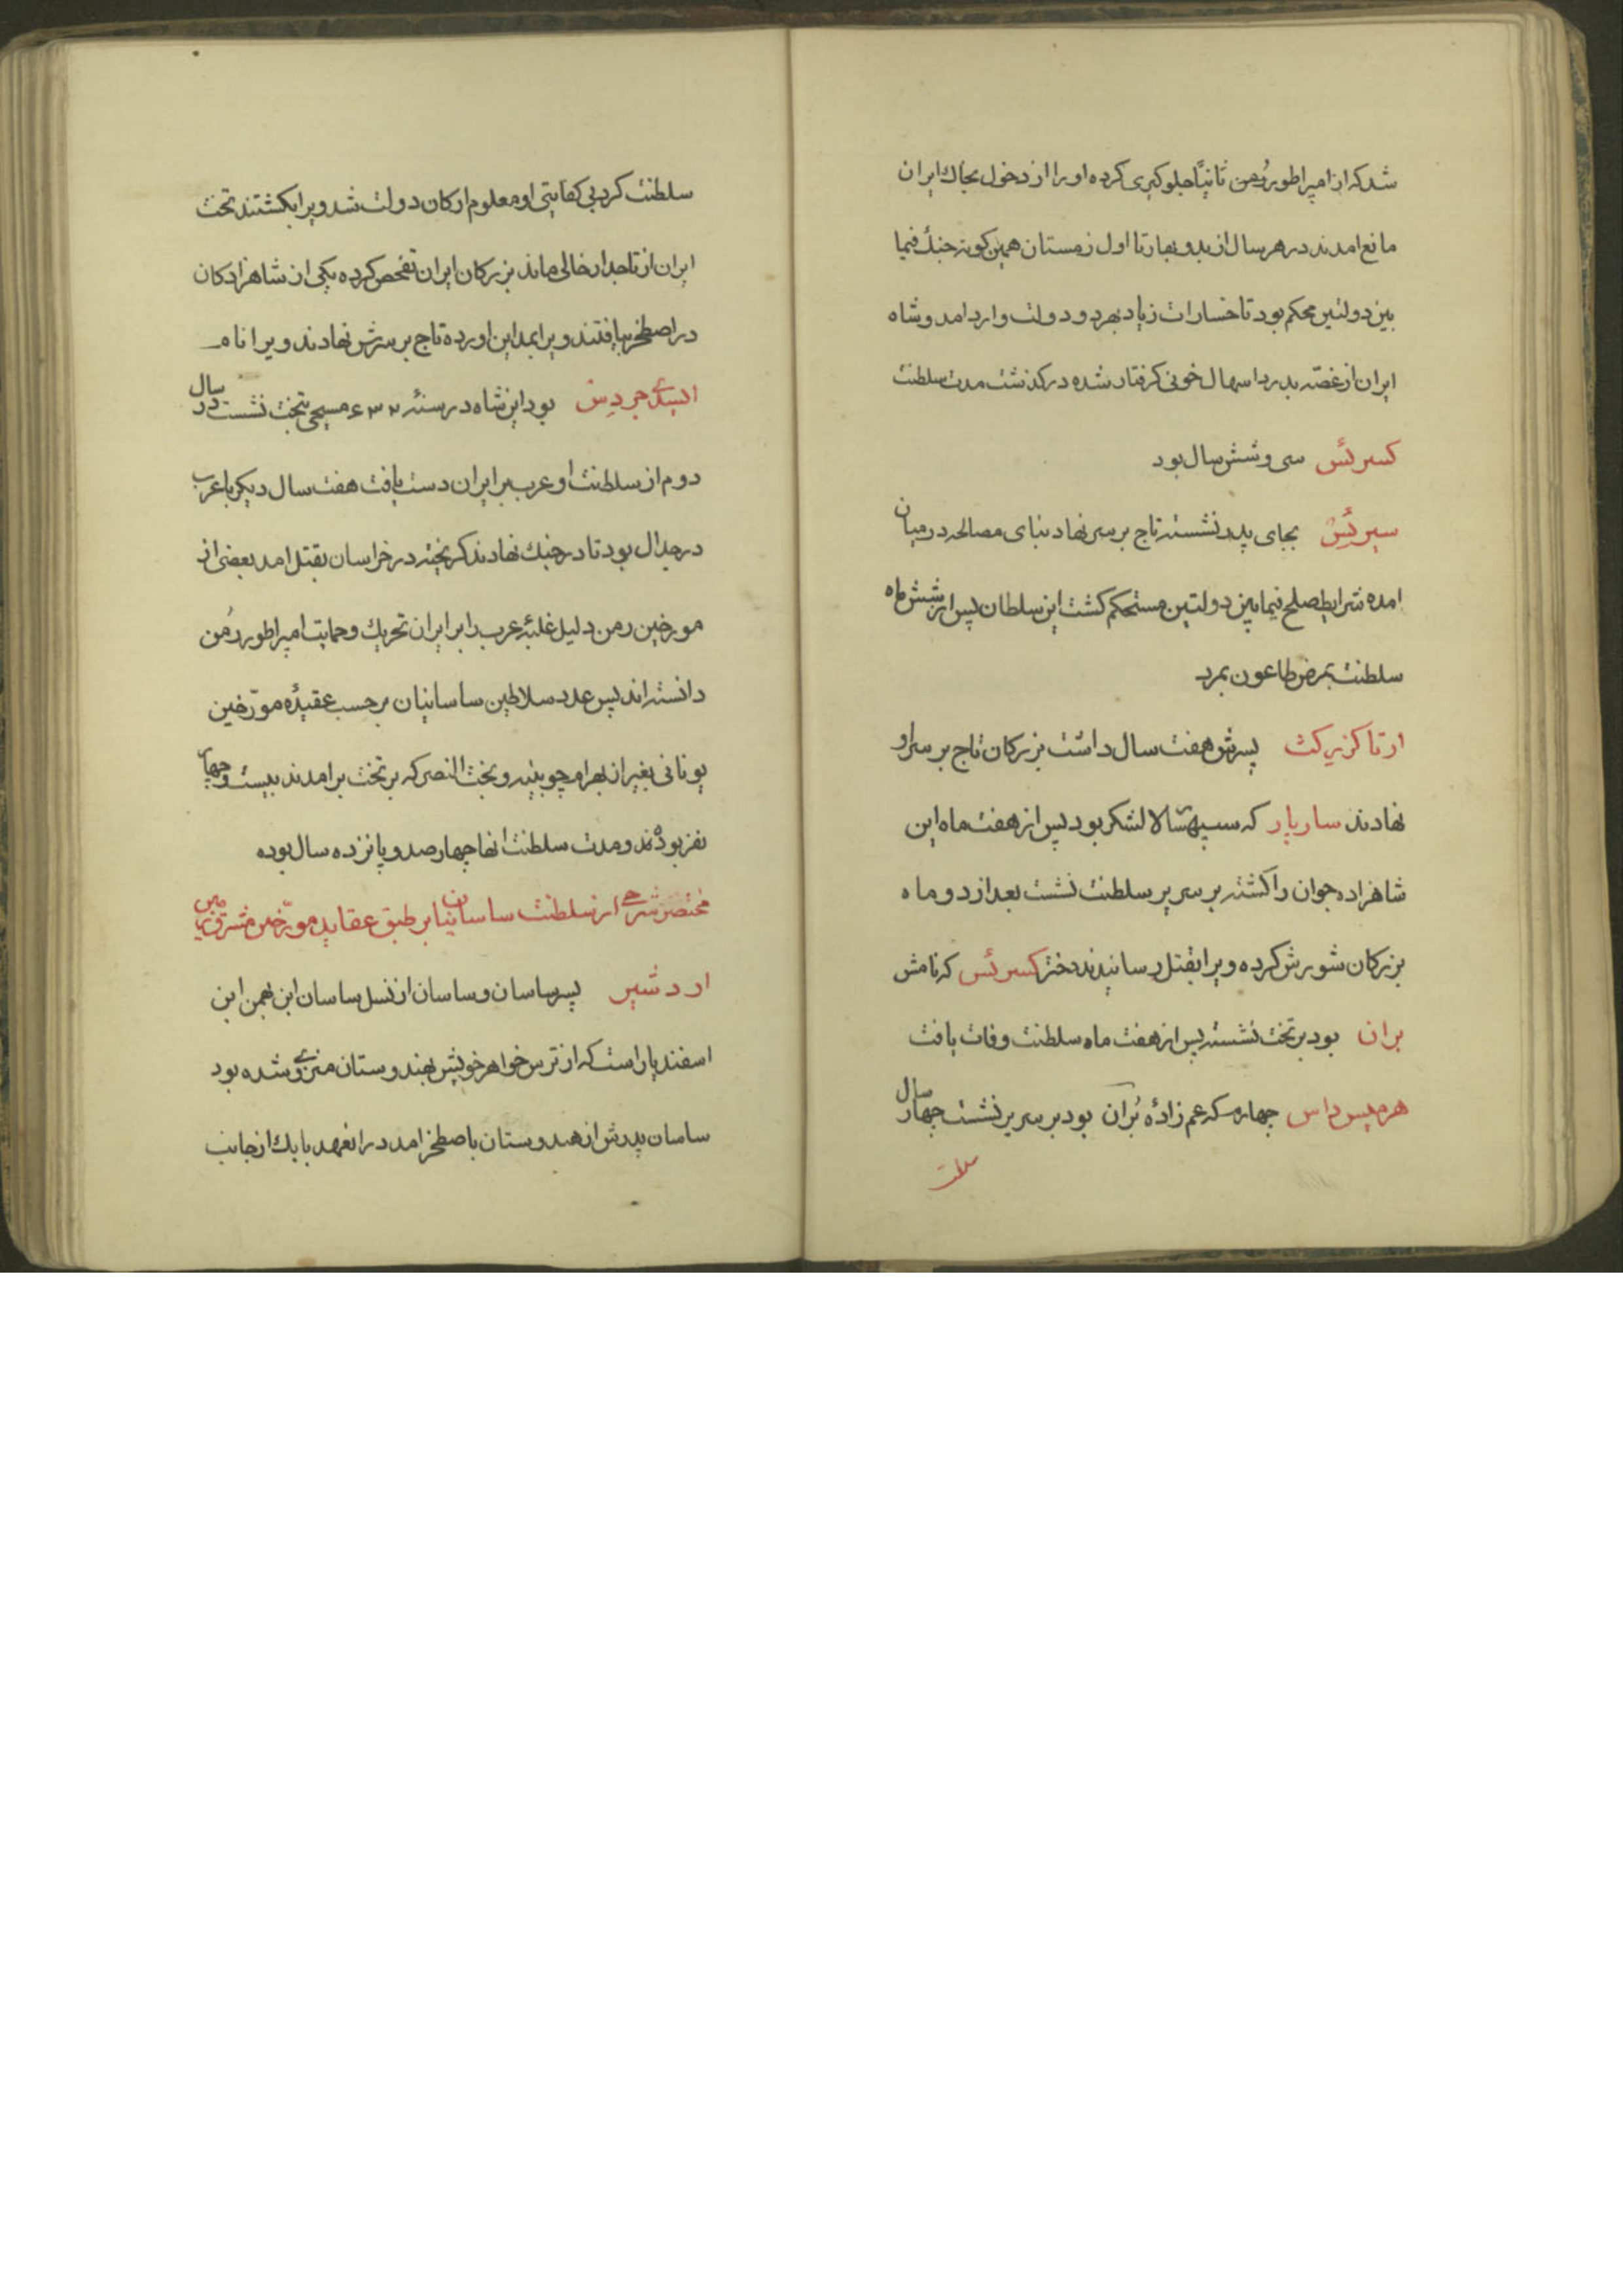 شد که از امپراطور رُمن ثانیّا جلوکیری کرده او را از دخول بخاك ایران
مانع امدند در هر سال از بدو بهار تا اول زمستان همین کونه جنك فیما
بین دولتین محکم بود تا خسارات زیاد بهر دو دولت وارد امد و شاه
ایران از غصّه بدرد اسهال خونی کرفتار شده در کذشت مدت سلطنت
کسرئس سی و شش سال بود
سیرئس بجای پدر نشسته تاج بر سر نهاد بنای مصالحه در میان
امده شرایط صلح فیمابین دولتین مستحکم کشت این سلطان پس از شش ماه
سلطنت بمرض طاعون بمرد
ارتاکزیرکث پسرش هفت سال داشت بزرکان تاج بر سر او
نهادند ساربار که سپهسالار لشکر بود پس از هفت ماه این
شاهزاده جوان را کشته بر سریر سلطنت نشست بعد از دو ماه
بزرکان شورش کرده ویرا بقتل رسانیدند دختر کسرئس که نامش
بران بود بر تخت نشسته پس از هفت ماه سلطنت وفات یافت
هرمیس داس چهارم که عم زادهٔ بُران بود بر سریر نشست چهار سال
سلطنت
سلطنت کرد بی کفایتی او معلوم ارکان دولت شد ویرا بکشتند تخت
ایران از تاجدار خالی ماند بزرکان ایران تفحص کرده یکی از شاهزادکان
در اصطخر یافتند ویرا بمداین اورده تاج بر سرش نهادند ویرا نام
ایسدی جردس بود این شاه در سنهٔ ۶۳۲ مسیحی بتخت نشست در سال
دوم از سلطنت او عرب بر ایران دست یافت هفت سال دیکر با عرب
در جدال بود تا در جنك نهاوند کریخته در خراسان بقتل امد بعضی از
مورخین رمن دلیل غلبهٔ عرب را بر ایران تحریك و حمایت امپراطور رُمن
دانسته اند پس عدد سلاطین ساسانیان بر حسب عقیدهٔ مورّخین
یونانی بغیر از بهرام چوبینه و بخت النصر که بر تخت برامدند بیست و چهار
نفر بودند و مدت سلطنت انها چهار صد و پانزده سال بوده
مختصر شرحی از سلطنت ساسانیان بر طبق عقاید مورّخین مشرق زمین
اردشیر پسر ساسان و ساسان از نسل ساسان ابن بهمن ابن
اسفندیار است که از ترس خواهر خویش بهندوستان منزوی شده بود
ساسان پدرش از هندوستان باصطخر امد در انعهد بابك از جانب